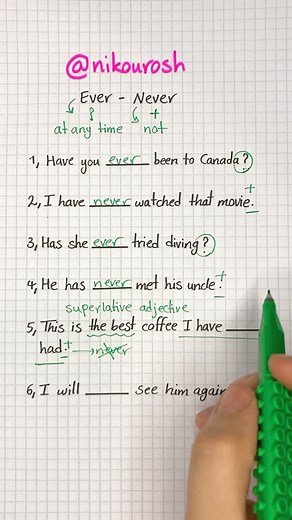 @nikourosh
Ever - Never
? +
at any time not
1, Have you ever been to Canada?
+
2, I have never watched that movie.
3, Has she ever tried diving?
+
4, He has never met his uncle.
superlative adjective
5, This is the best coffee I have ____
had. + → never
6, I will ____ see him again